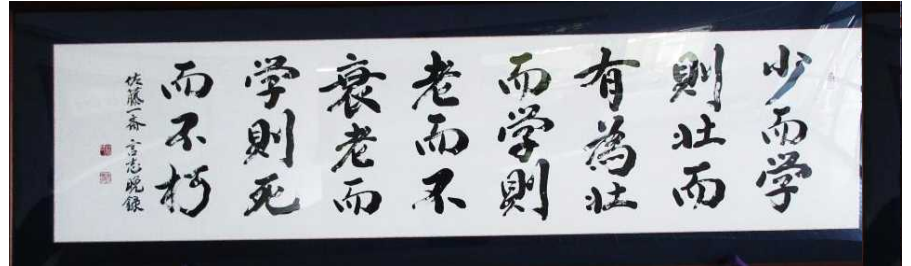 少而学
則壮而
有為壮
而学則
老而不
衰老而
学則死
而不朽
佐藤一斎 言志晩録